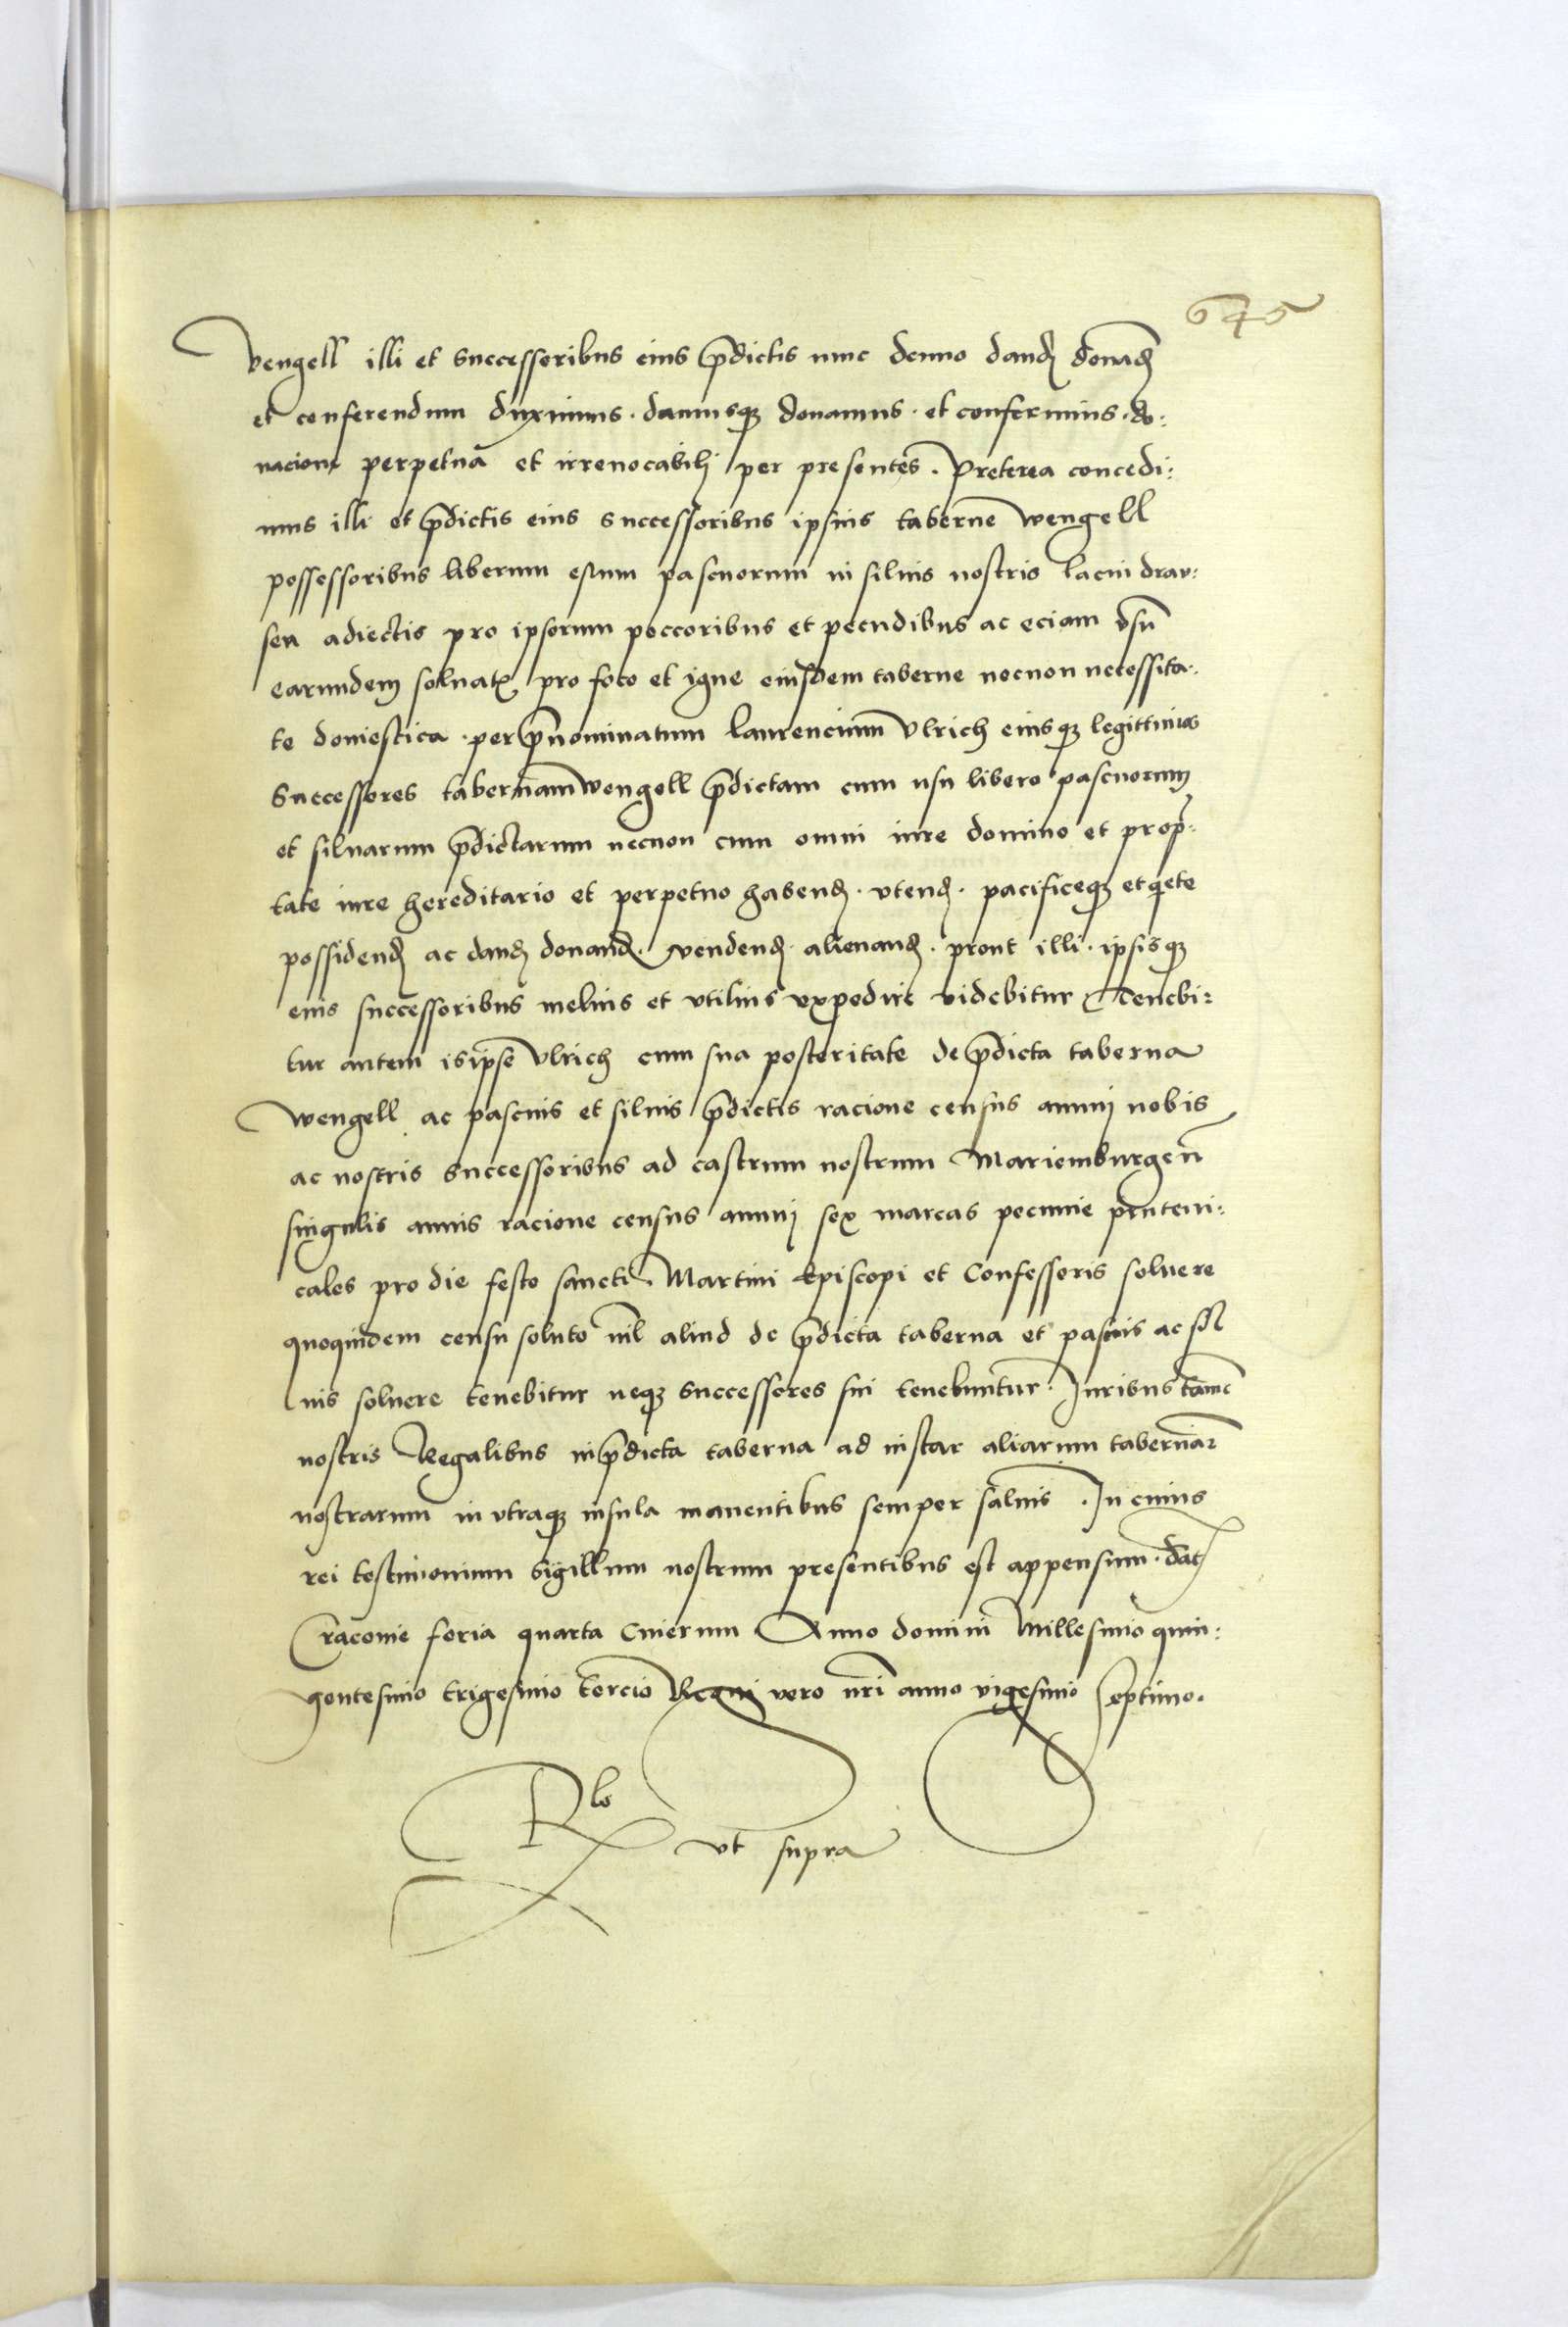 645
Vengell illi et successoribus eius p̄dictis nunc denuo dand donand
et conferendum duximus . damusq donamus . et conferimus . do:
nacione perpetua et irreuocabili per presentes . Preterea concedi:
mus illi et p̄dictis eius successoribus ipsius taberne Wengell
possessoribus liberum esum pascuorum in siluis nostris lacui drau:
sen adiectis pro ipsorum peccoribus et pecudibus ac eciam vsū
earundem siluar pro foco et igne eiusdem taberne necnon necessita:
te domestica . per p̄nominatum Laurencium Vlrich eiusq legittimos
Successores tabernam Wengell p̄dictam cum usu libero pascuorum
et siluarum p̄dictarum necnon cum omni iure dominio et prop̄:
tate iure hereditario et perpetuo habend . vtend . pacificeq et qete
possidend ac dand donand . vendend . alienand . prout illi . ipsisq
eius successoribus melius et vtilius expedire videbitur Tenebi:
tur autem is ipse Vlrich cum sua posteritate de p̄dicta taberna
Wengell ac pascuis et siluis p̄dictis racione census annui nobis
ac nostris successoribus ad castrum nostrum Mariemburgeñ
singulis annis racione census annui sex marcas pecunie pruteni:
cales pro die festo sancti Martini Episcopi et Confessoris soluere
quoquidem censu soluto nil aliud de p̄dicta taberna et pascuis ac sil
uis soluere tenebitur neq successores sui tenebuntur . Iuribus tamē
nostris Regalibus in p̄dicta taberna ad instar aliarum tabernar
nostrarum in vtraq insula manentibus semper saluis . In cuius
rei testimonium Sigillum nostrum presentibus est appensum . dat
Cracouie feria quarta Cinerum Anno domini Millesimo quin:
gentesimo trigesimo tercio Regni vero nr̄i anno vigesimo septimo .
Rlo
vt supra